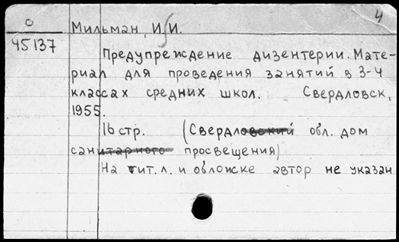 4
О
45137
Мильман, И.И.
Предупреждение дизентерии. Мате-
риал для проведения занятий в 3-4
классах средних школ. Свердловск,
1955.
16 стр. (Свердловский обл. дом
санитарного просвещения)
На тит. л. и обложке автор не указан